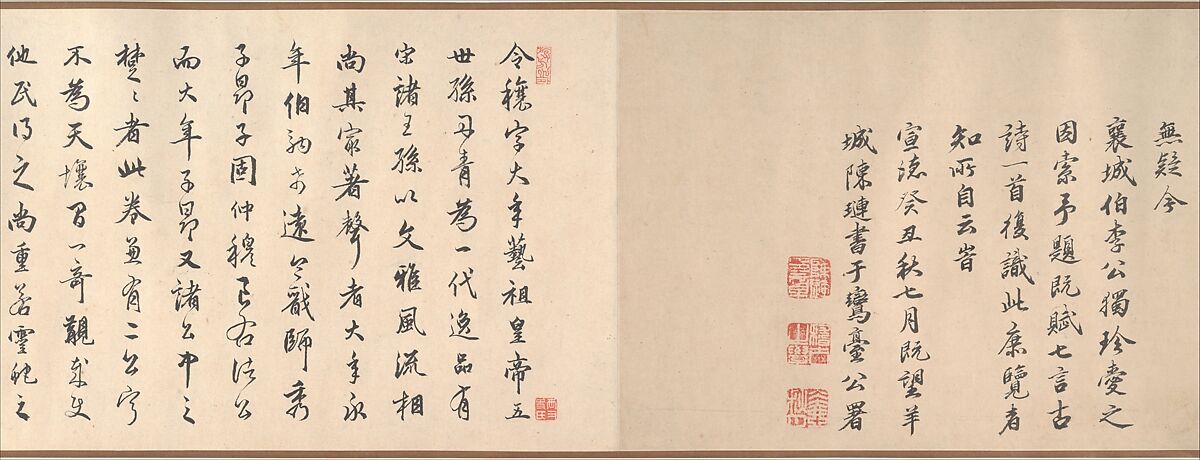 無疑今
襄城伯李公獨珍愛之
因索予題既賦七言古
詩一首復識此庶覽者
知所自云旹
宣德癸丑秋七月既望羊
城陳璉書于鸞臺公署
令穰字大年藝祖皇帝五
世孫丹青為一代逸品有
宋諸王孫以文雅風流相
尚其最著聲者大年永
年伯駒希遠令戩師秀
子昂子固仲穆已右諸公
而大年子昂又諸公中之
楚〻者此卷並有二公字
不為天壤間一奇觀耶使
他氏得之尚重若靈蛇之